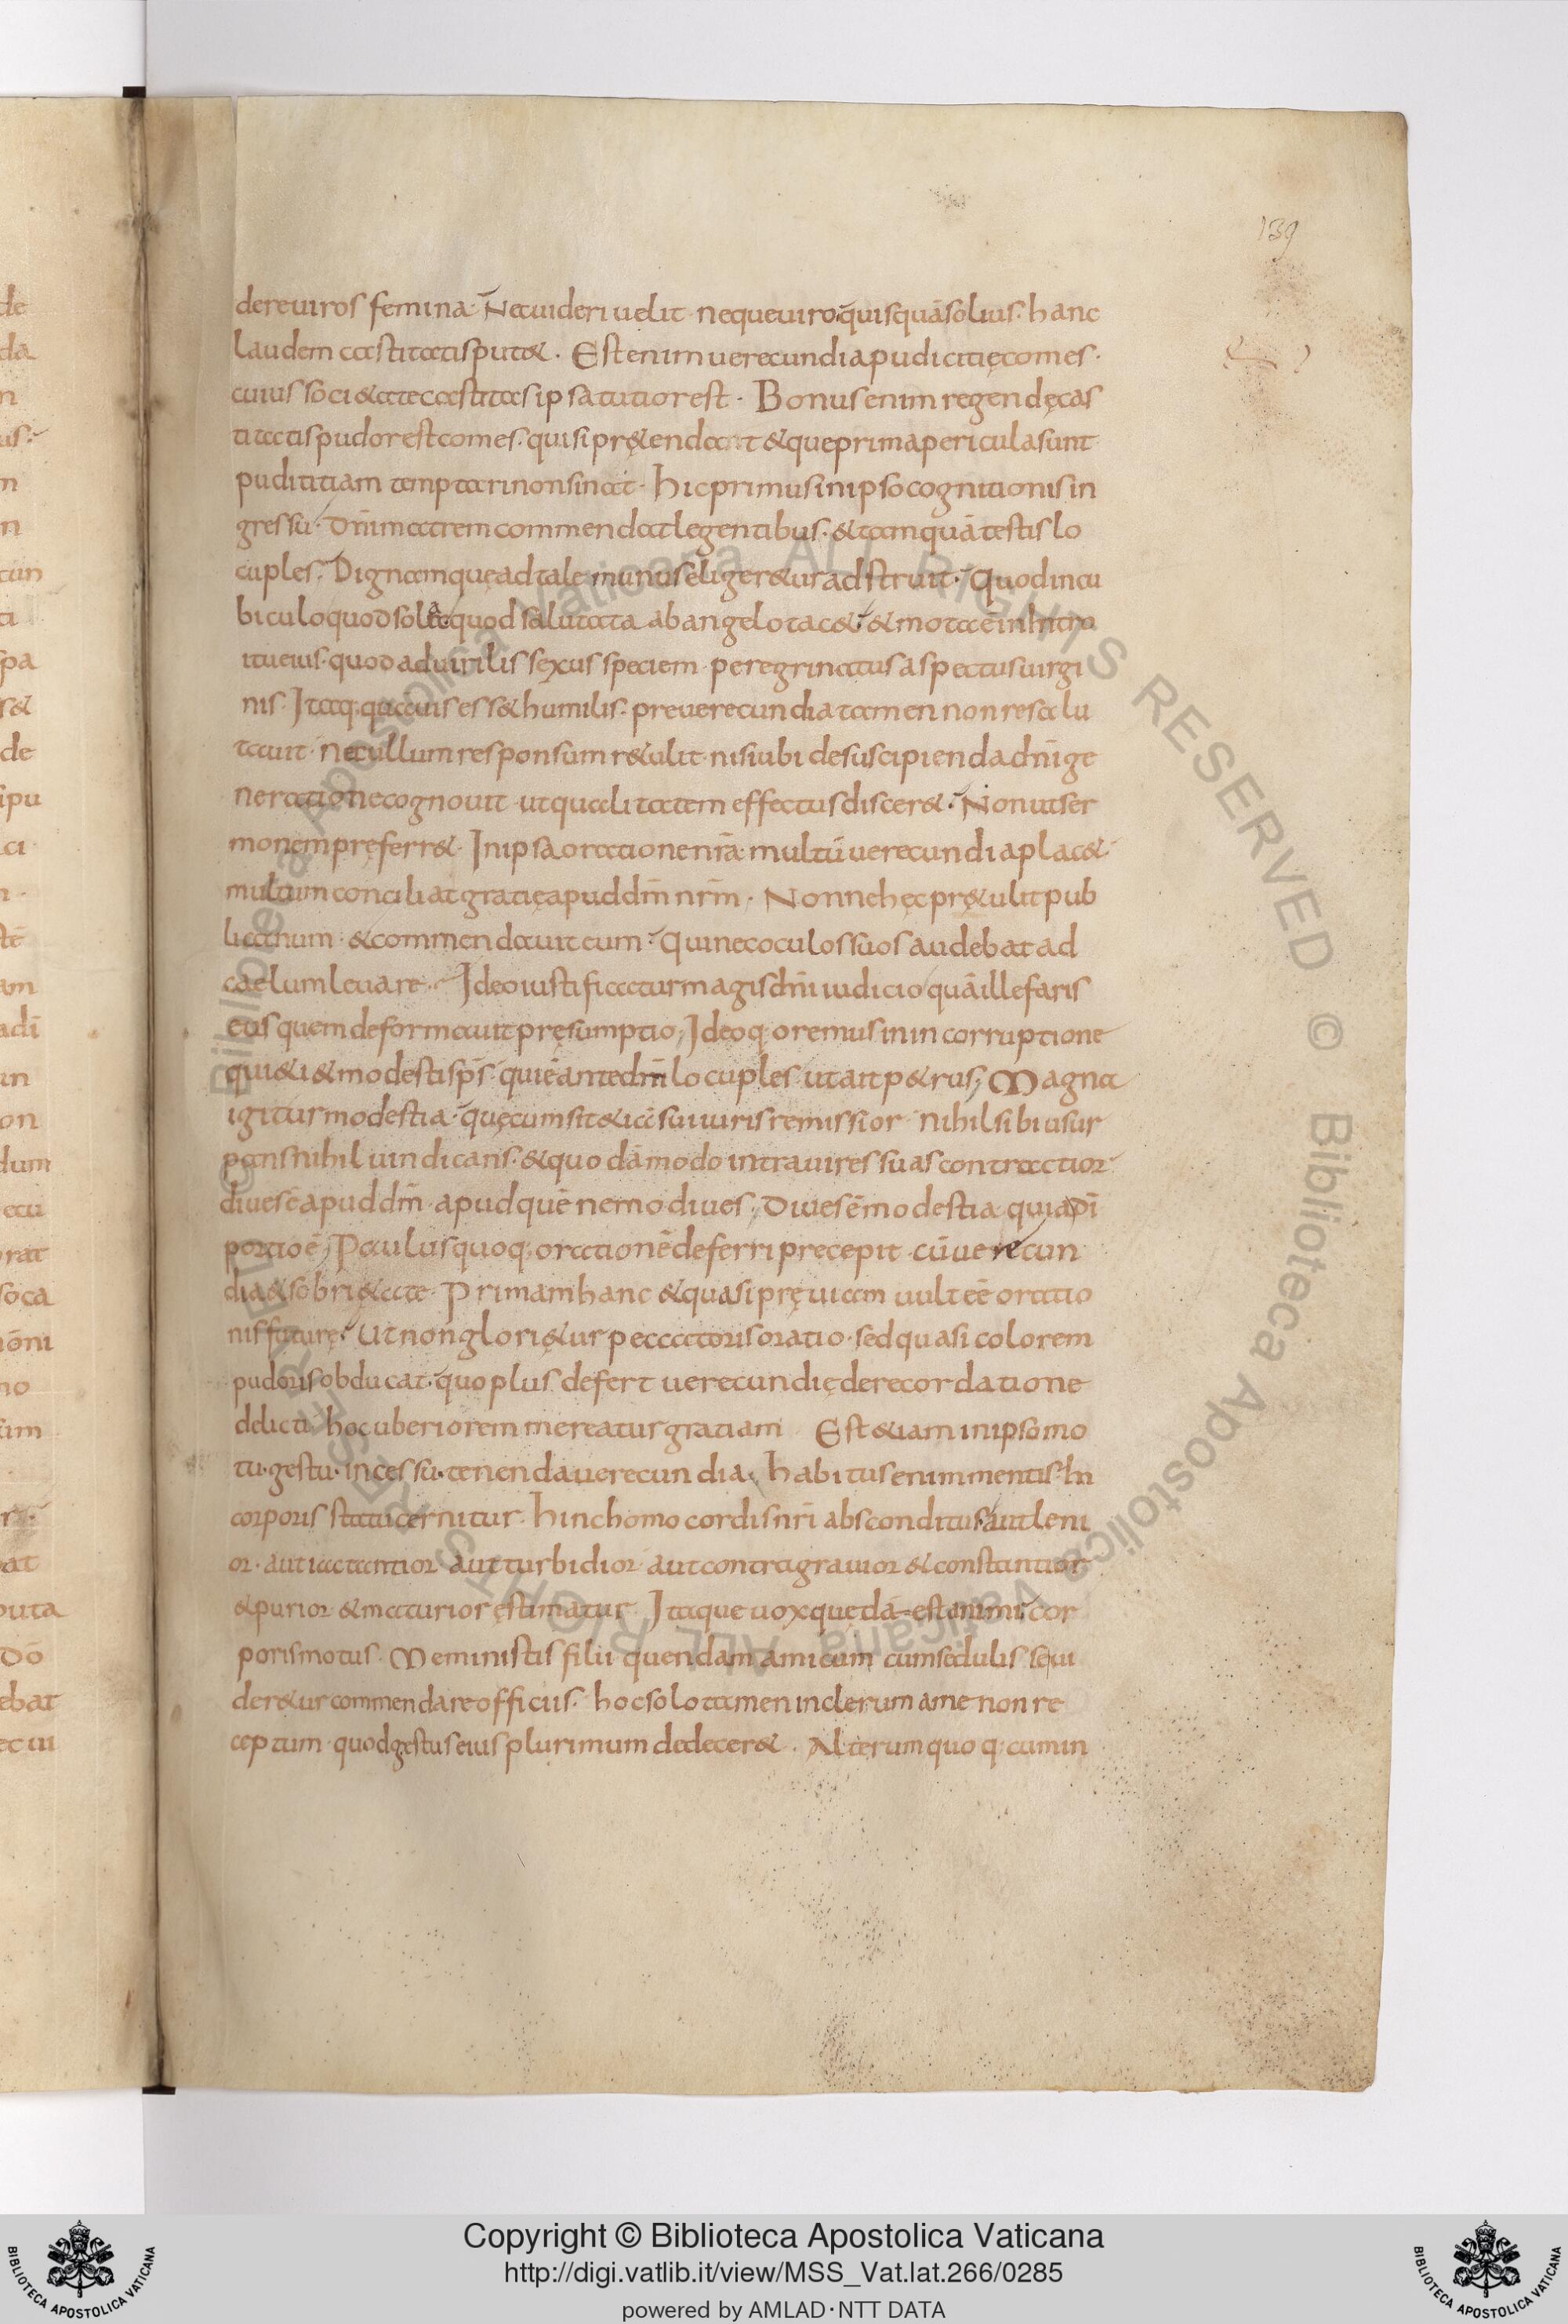 139
dere uiros femina. Nec uideri uelit neque uiro. quisquā solius. hanc
laudem castitatis put&. Est enim uerecundia pudicitię comes.
cuius soci&ate castitas ipsa tutior est. Bonus enim regendę cas
titatis pudor est comes. qui si pr&endat & que prima pericula sunt
puditiam temptari non sinat. Hic primus in ipso cognitionis in
gressu. dñi matrem commendat legentibus. & tamquā testis lo
cuples. Dignam que ad tale munus eliger&ur adstruit. Quod in cu
biculo quod sola. quod salutata ab angelo tac&. & mota ē in intro
itu eius. quod ad uirilis sexus speciem peregrinatus aspectus uirgi
nis. Itaq; quauis ess& humilis. pre uerecundia tamen non resalu
tauit. nec ullum responsum r&ulit. nisi ubi de suscipienda dñi ge
neratione cognouit ut qualitatem effectus discer&. Non ut ser
monem pręferr&. In ipsa oratione nr̄a multū uerecundia plac&
multum conciliat gratię apud dm̄ nrm̄. Nonne hęc pr&ulit pub
licanum. & commendauit eum. Qui nec oculos suos audebat ad
caelum leuare. Ideo iustificatur magis dñi iudicio quā ille faris
eus quem deformauit pręsumptio; Ideoq; oremus in incorruptione
qui&i & modesti sp̄s. qui ē ante dm̄ locuples. ut ait p&rus; Magna
igitur modestia. quę cum sit &iā sui iuris remissior nihil sibi usur
pans nihil uindicans. & quodāmodo intra uires suas contractior
diues ē apud dm̄ apud quē nemo diues. Diues ē modestia quia dī
portio ē; Paulus quoq; orationē deferri precepit cū uerecun
dia & sobri&ate. Primam hanc & quasi pręuiam uult eē oratio
nis futurę. Ut non glori&ur peccatoris oratio. sed quasi colorem
pudoris obducat. quo plus defert uerecundię de recordatione
delicti hoc uberiorem mereatur gratiam Est &iam in ipso mo
tu. gestu. incessu. tenenda uerecundia. Habitus enim mentis. In
corporis statu cernitur. hinc homo cordis nr̄i absconditus aut leni
or. aut iactantior aut turbidior aut contra grauior & constantior
& purior & maturior ęstimatur Itaque uox quędā est animi cor
poris motus. Meministis filii quendam amicum cum sedulis se ui
der&ur commendare officiis. hoc solo tamen in clerum a me non re
ceptum. quod gestus eius plurimum dedecer&. Alterum quoq; cum in
Copyright © Biblioteca Apostolica Vaticana
http://digi.vatlib.it/view/MSS_Vat.lat.266/0285
powered by AMLAD·NTT DATA